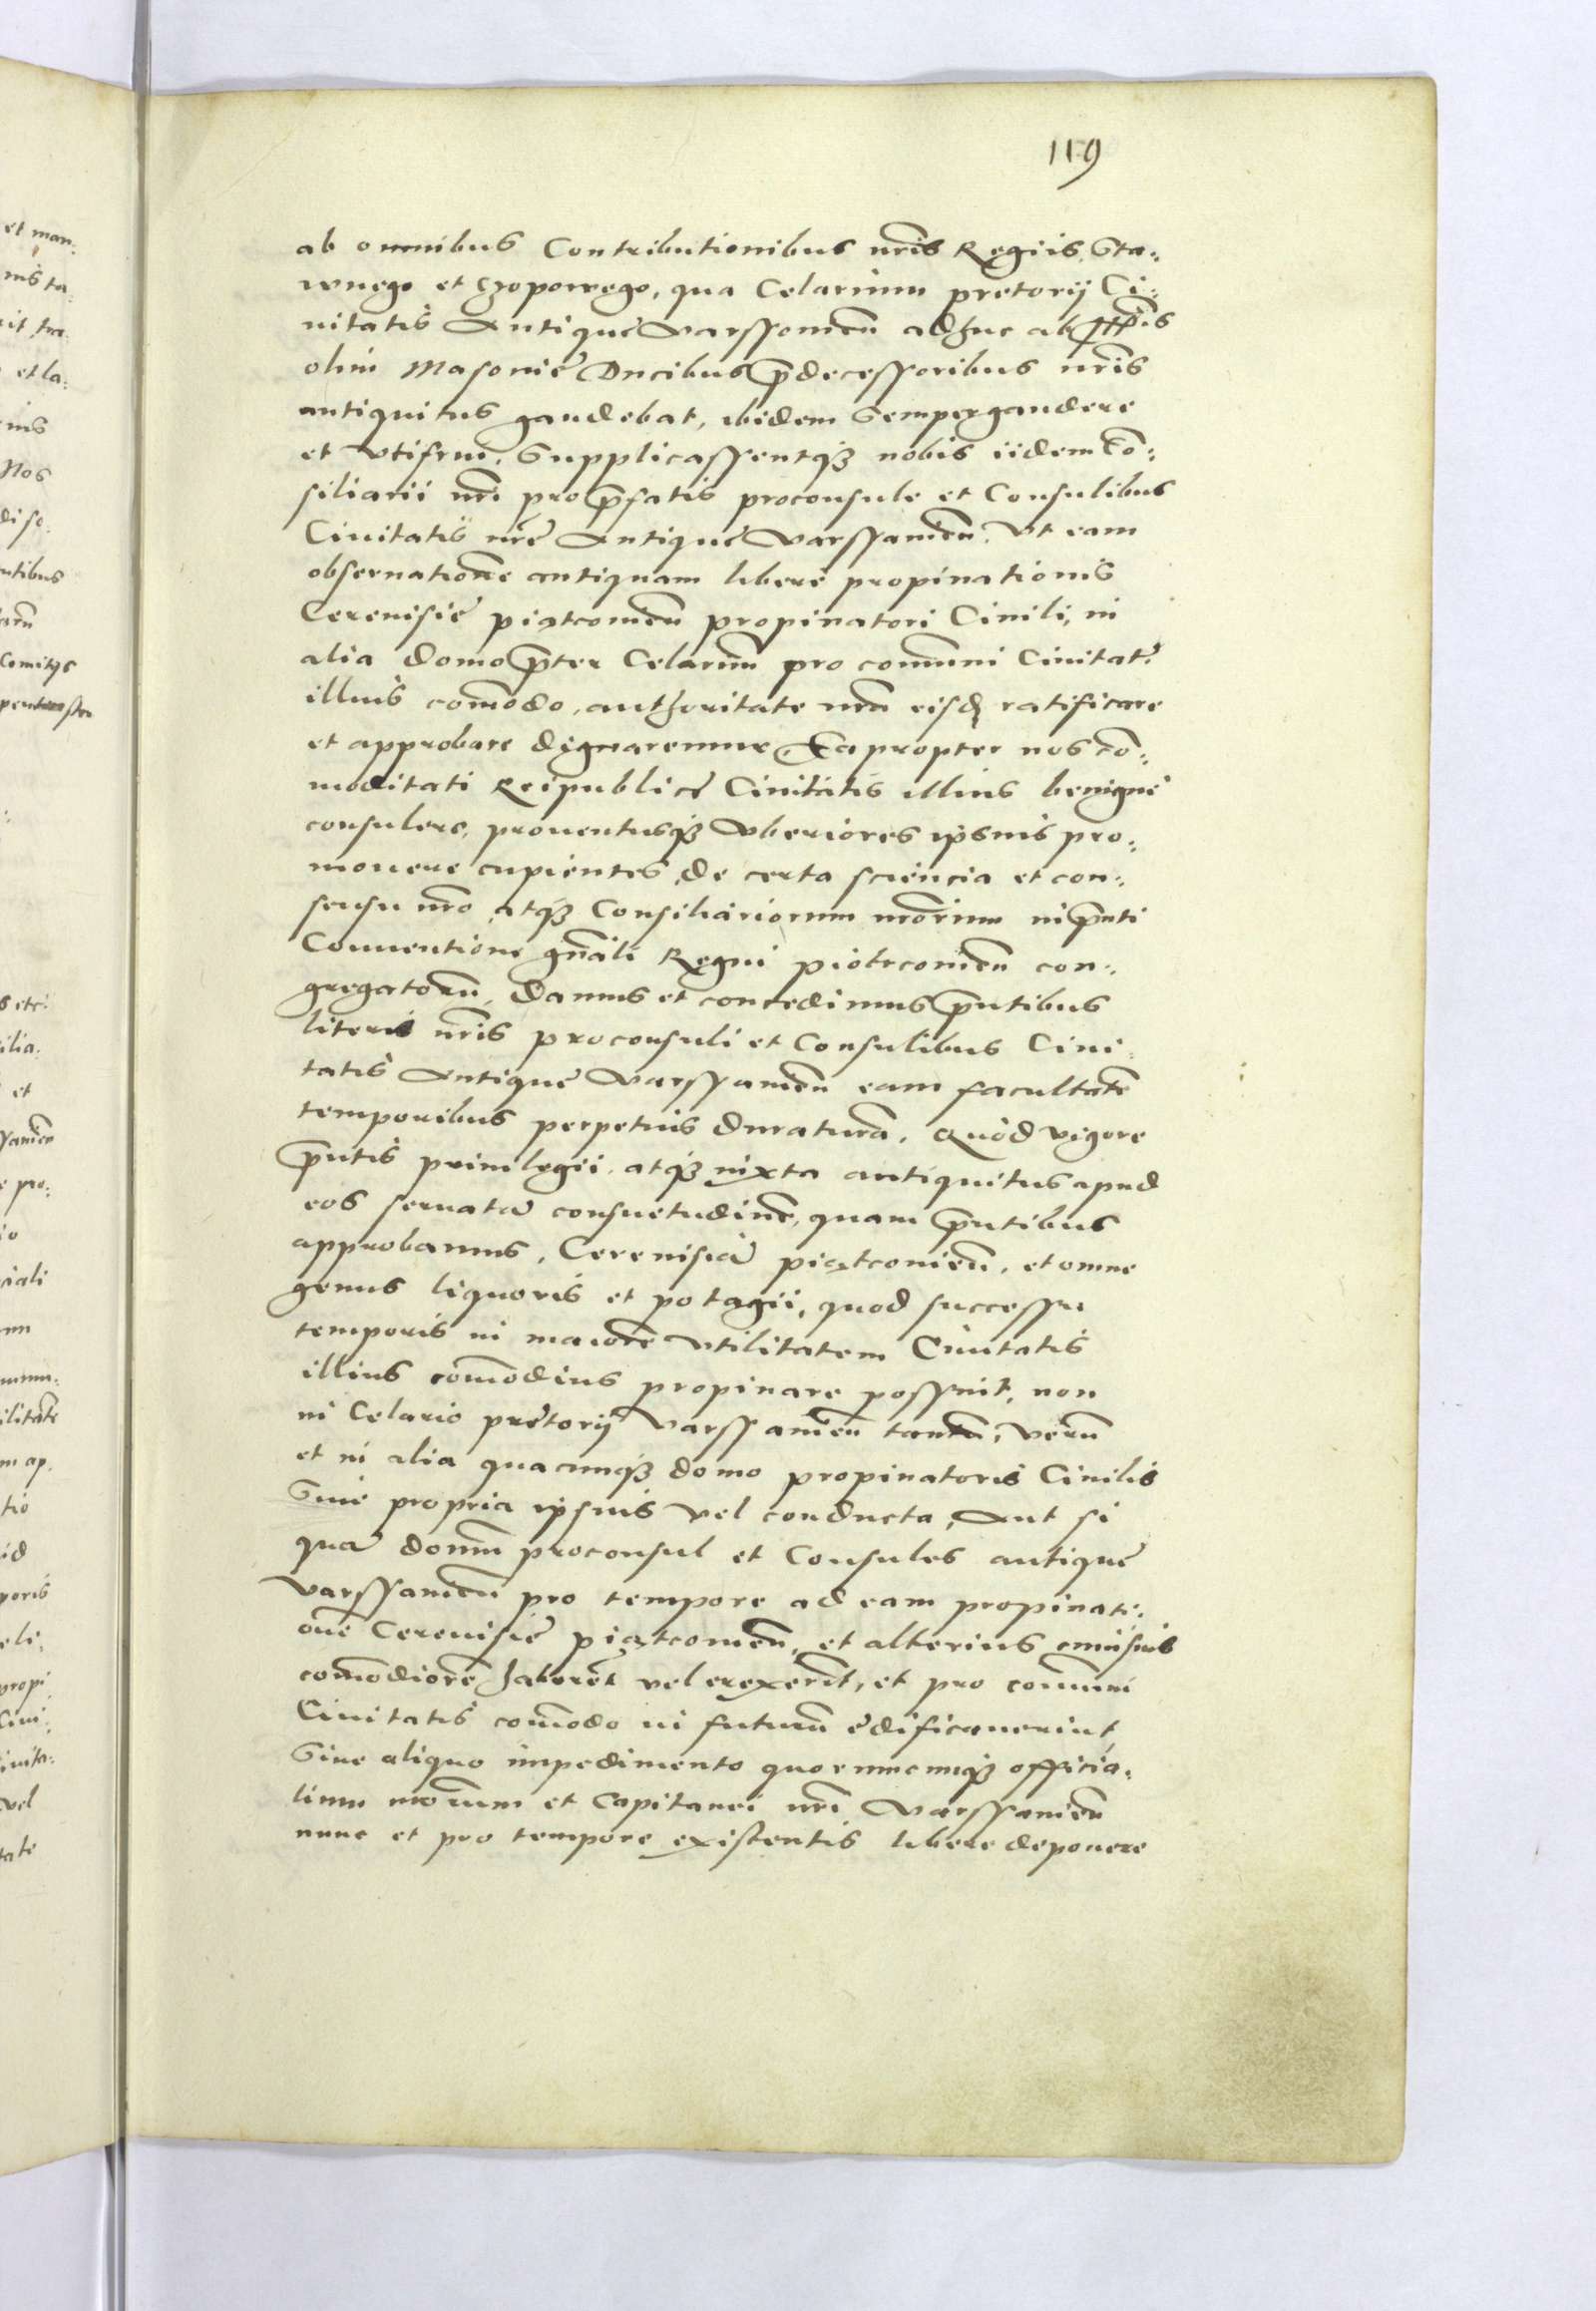 119
ab omnibus Contributionibus nr̃is Regiis, Sta¬
wnego et Czopowego, qua Celarium pretorij Ci¬
uitatis Antique Varssouień adhuc ab Ill̃mis
olim Masouie Ducibus p̃decessoribus nr̃is
antiquitus gaudebat, ibidem Semper gaudere
et vti frui. Supplicassentq3 nobis iidem Cõ¬
siliarii nr̃i pro p̃fatis proconsule et Consulibus
Ciuitatis nr̃e Antique Varssauień. Vt eam
obseruationẽ antiquam libere propinationis
Cereuisie piatcouień propinatori Ciuili, in
alia domo p̃ter Celarium pro com̃uni Ciuitatis
illius com̃odo, authoritate nr̃a eisdẽ ratificare
et approbare dignaremur Ea propter nos Cõ¬
moditati Reipublice Ciuitatis illius benigne
consulere, prouentusq3 vberiores ipsius pro¬
mouere cupientes, de certa sciencia et con¬
sensu nr̃o, atq3 Consiliariorum nr̃orum in p̃nti
Conuentione gñali Regni piotrcouień con¬
gregatorũ, Damus et concedimus p̃ntibus
literis nr̃is proconsuli et Consulibus Ciui¬
tatis Antique Varssauień eam facultatẽ
temporibus perpetuis duraturã, Quod vigore
p̃ntis priuilegii, atq3 iuxta antiquitus apud
eos seruatã consuetudinẽ, quam p̃ntibus
approbamus, Cereuisiã piatcouień, et omne
genus liquoris et potagii, quod successu
temporis in maiorẽ vtilitatem Ciuitatis
illius com̃odius propinare possent, non
in Celario pretorij Varssauień tantũ, verũ
et in alia quacunq3 domo propinatoris Ciuilis
Siue propria ipsius vel conducta, Aut si
quã domũ proconsul et Consules antique
Varssauień pro tempore ad eam propinati¬
onẽ Cereuisie piatcouień, et alterius cuiusuis
com̃odiorẽ haberẽt vel erexerĩt, et pro com̃uni
Ciuitatis com̃odo in futurũ edificauerint,
Sine aliquo impedimento quorumcunq3 officia¬
lium nr̃orum et Capitanei nr̃i Varssauień
nunc et pro tempore existentis libere deponere